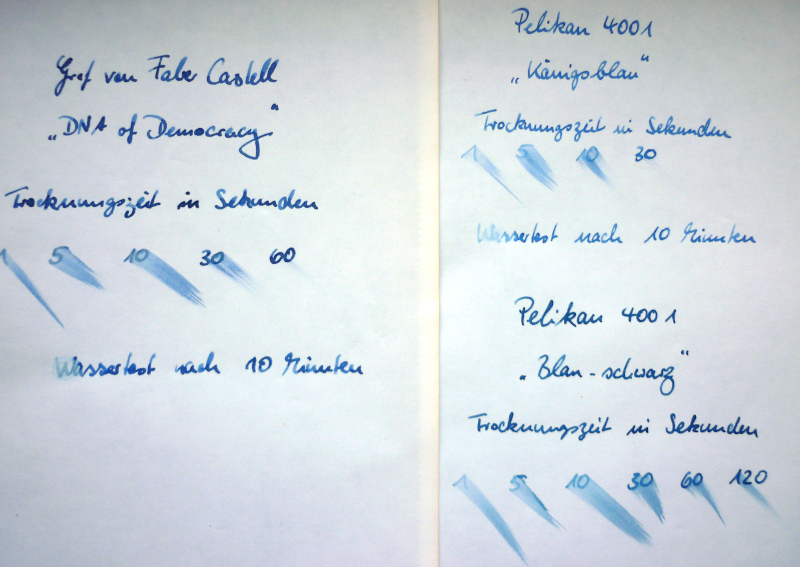 Graf von Faber Castell
„DNA of Democracy"
Trocknungszeit in Sekunden
1 5 10 30 60
Wassertest nach 10 Minuten
Pelikan 4001
„Königsblau"
Trocknungszeit in Sekunden
1 5 10 30
Wassertest nach 10 Minuten
Pelikan 4001
„Blau-schwarz"
Trocknungszeit in Sekunden
1 5 10 30 60 120